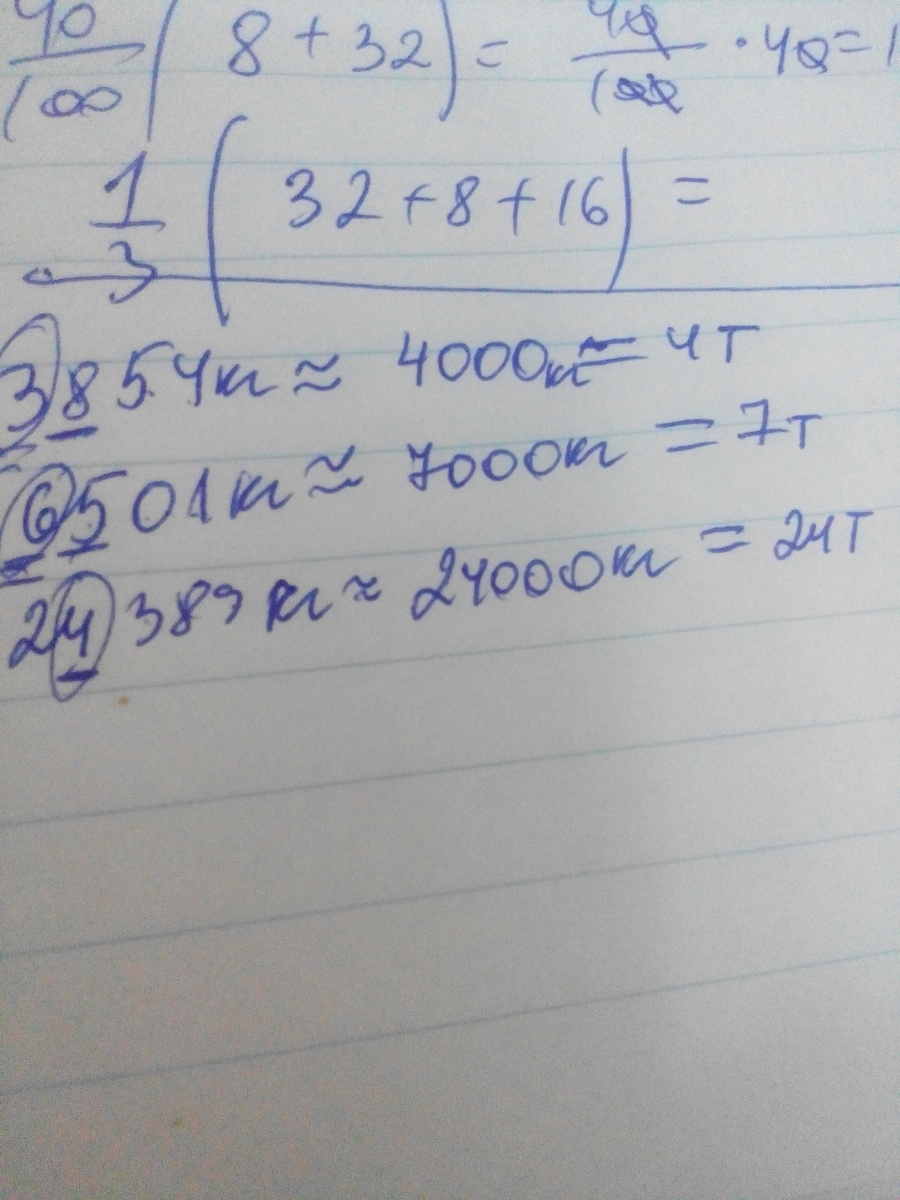 40/100 ( 8 + 32 ) = 40/100 · 40 = 1
1/3 ( 32 + 8 + 16 ) =
3854кг ≈ 4000кг = 4т
6501кг ≈ 7000кг = 7т
24389кг ≈ 24000кг = 24т